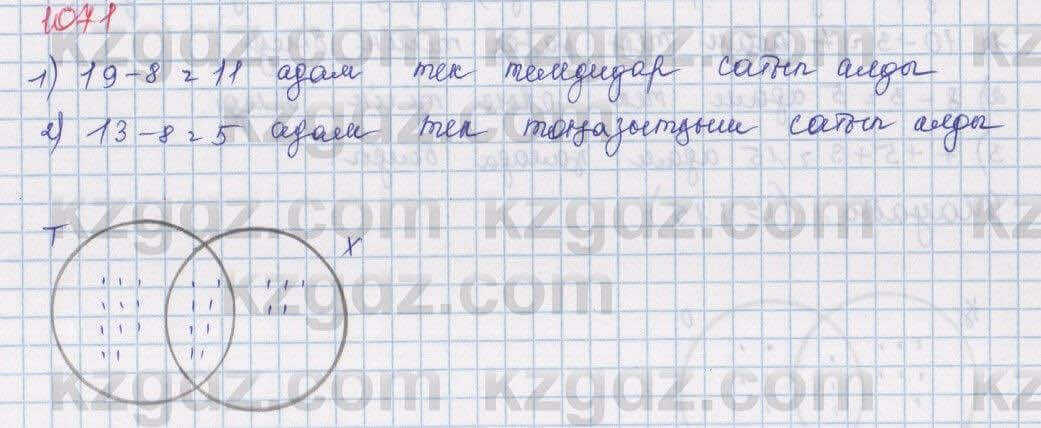 1071
1) 19-8=11 адам тек теледидар сатып алды
2) 13-8=5 адам тек тоңазытқыш сатып алды
T X
kzgdz.com kzgdz.com
kzgdz.com kzgdz.com
kzgdz.com
kzgdz.com kzgdz.com